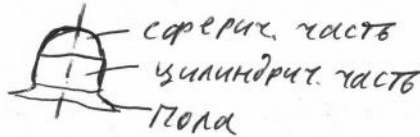 сферич. часть
цилиндрич. часть
Пола